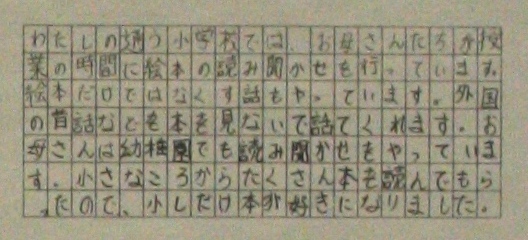 わたしの通う小学校では、お母さんたちが授
業の時間に絵本の読み聞かせを行っています。
絵本だけではなくす話もやっています。外国
の昔話なども本を見ないで話てくれます。お
母さんは幼稚園でも読み聞かせをやっていま
す。小さなころからたくさん本を読んでもら
ったので、小しだけ本が好きになりました。